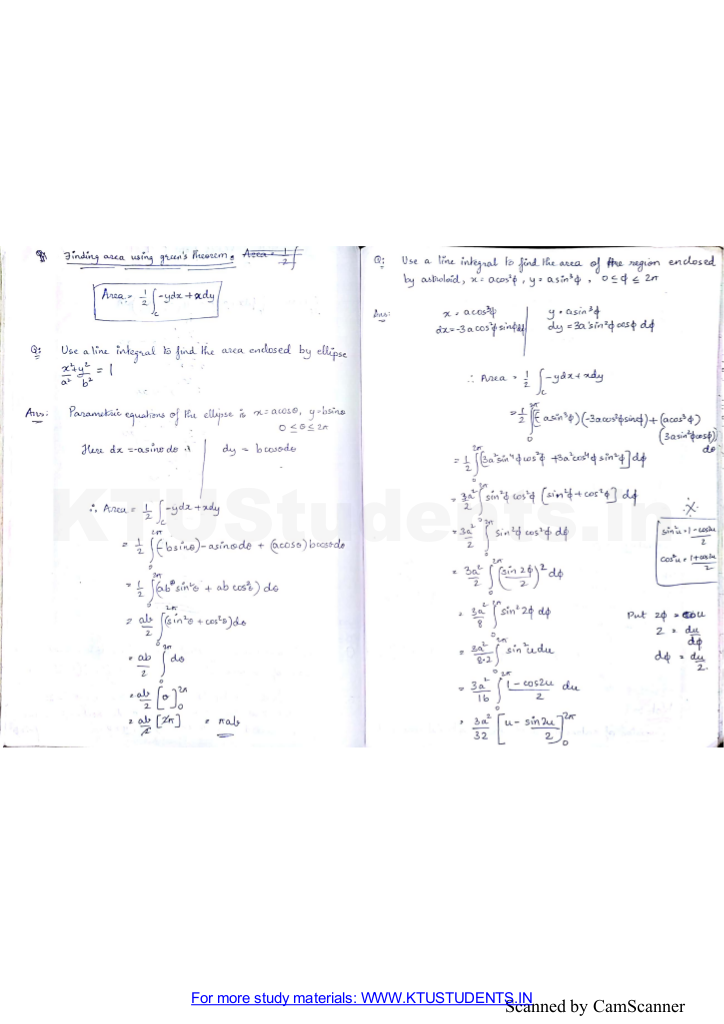 Finding area using green's theorem. Area = 1/2 ∫
Area = 1/2 ∫_C -ydx + xdy
Q: Use a line integral to find the area enclosed by ellipse
x²/a² + y²/b² = 1
Ans: Parametric equations of the ellipse is x = acosθ, y = bsinθ
0 ≤ θ ≤ 2π
Here dx = -asinθ dθ | dy = bcosθdθ
∴ Area = 1/2 ∫_C -ydx + xdy
= 1/2 ∫_0^2π (-bsinθ) -asinθdθ + (acosθ) bcosθdθ
= 1/2 ∫_0^2π (ab sin²θ + ab cos²θ) dθ
= ab/2 ∫_0^2π (sin²θ + cos²θ)dθ
= ab/2 ∫_0^2π dθ
= ab/2 [θ]_0^2π
= ab/2 [2π] = πab
Q: Use a line integral to find the area of the region enclosed
by astroloid, x = acos³ϕ, y = asin³ϕ, 0 ≤ ϕ ≤ 2π
Ans: x = acos³ϕ | y = asin³ϕ
dx = -3acos²ϕsinϕdϕ | dy = 3a sin²ϕ cosϕ dϕ
∴ Area = 1/2 ∫_C -ydx + xdy
= 1/2 ∫_0^2π (-asin³ϕ)(-3acos²ϕsinϕ) + (acos³ϕ)
(3asin²ϕcosϕ) dϕ
= 1/2 ∫_0^2π [3a²sin⁴ϕcos²ϕ + 3a²cos⁴ϕ sin²ϕ] dϕ
= 3a²/2 ∫_0^2π sin²ϕ cos²ϕ [sin²ϕ + cos²ϕ] dϕ
= 3a²/2 ∫_0^2π sin²ϕ cos²ϕ dϕ
sin²u = 1-cos2u/2
cos²u = 1+cos2u/2
= 3a²/2 ∫_0^2π (sin 2ϕ/2)² dϕ
= 3a²/8 ∫_0^2π sin²2ϕ dϕ
Put 2ϕ = u
2 = du/dϕ
dϕ = du/2
= 3a²/8·2 ∫_0^2π sin²u du
= 3a²/16 ∫_0^2π 1-cos2u/2 du
= 3a²/32 [u - sin2u/2]_0^2π
KTUStudents.in
For more study materials: WWW.KTUSTUDENTS.IN
Scanned by CamScanner